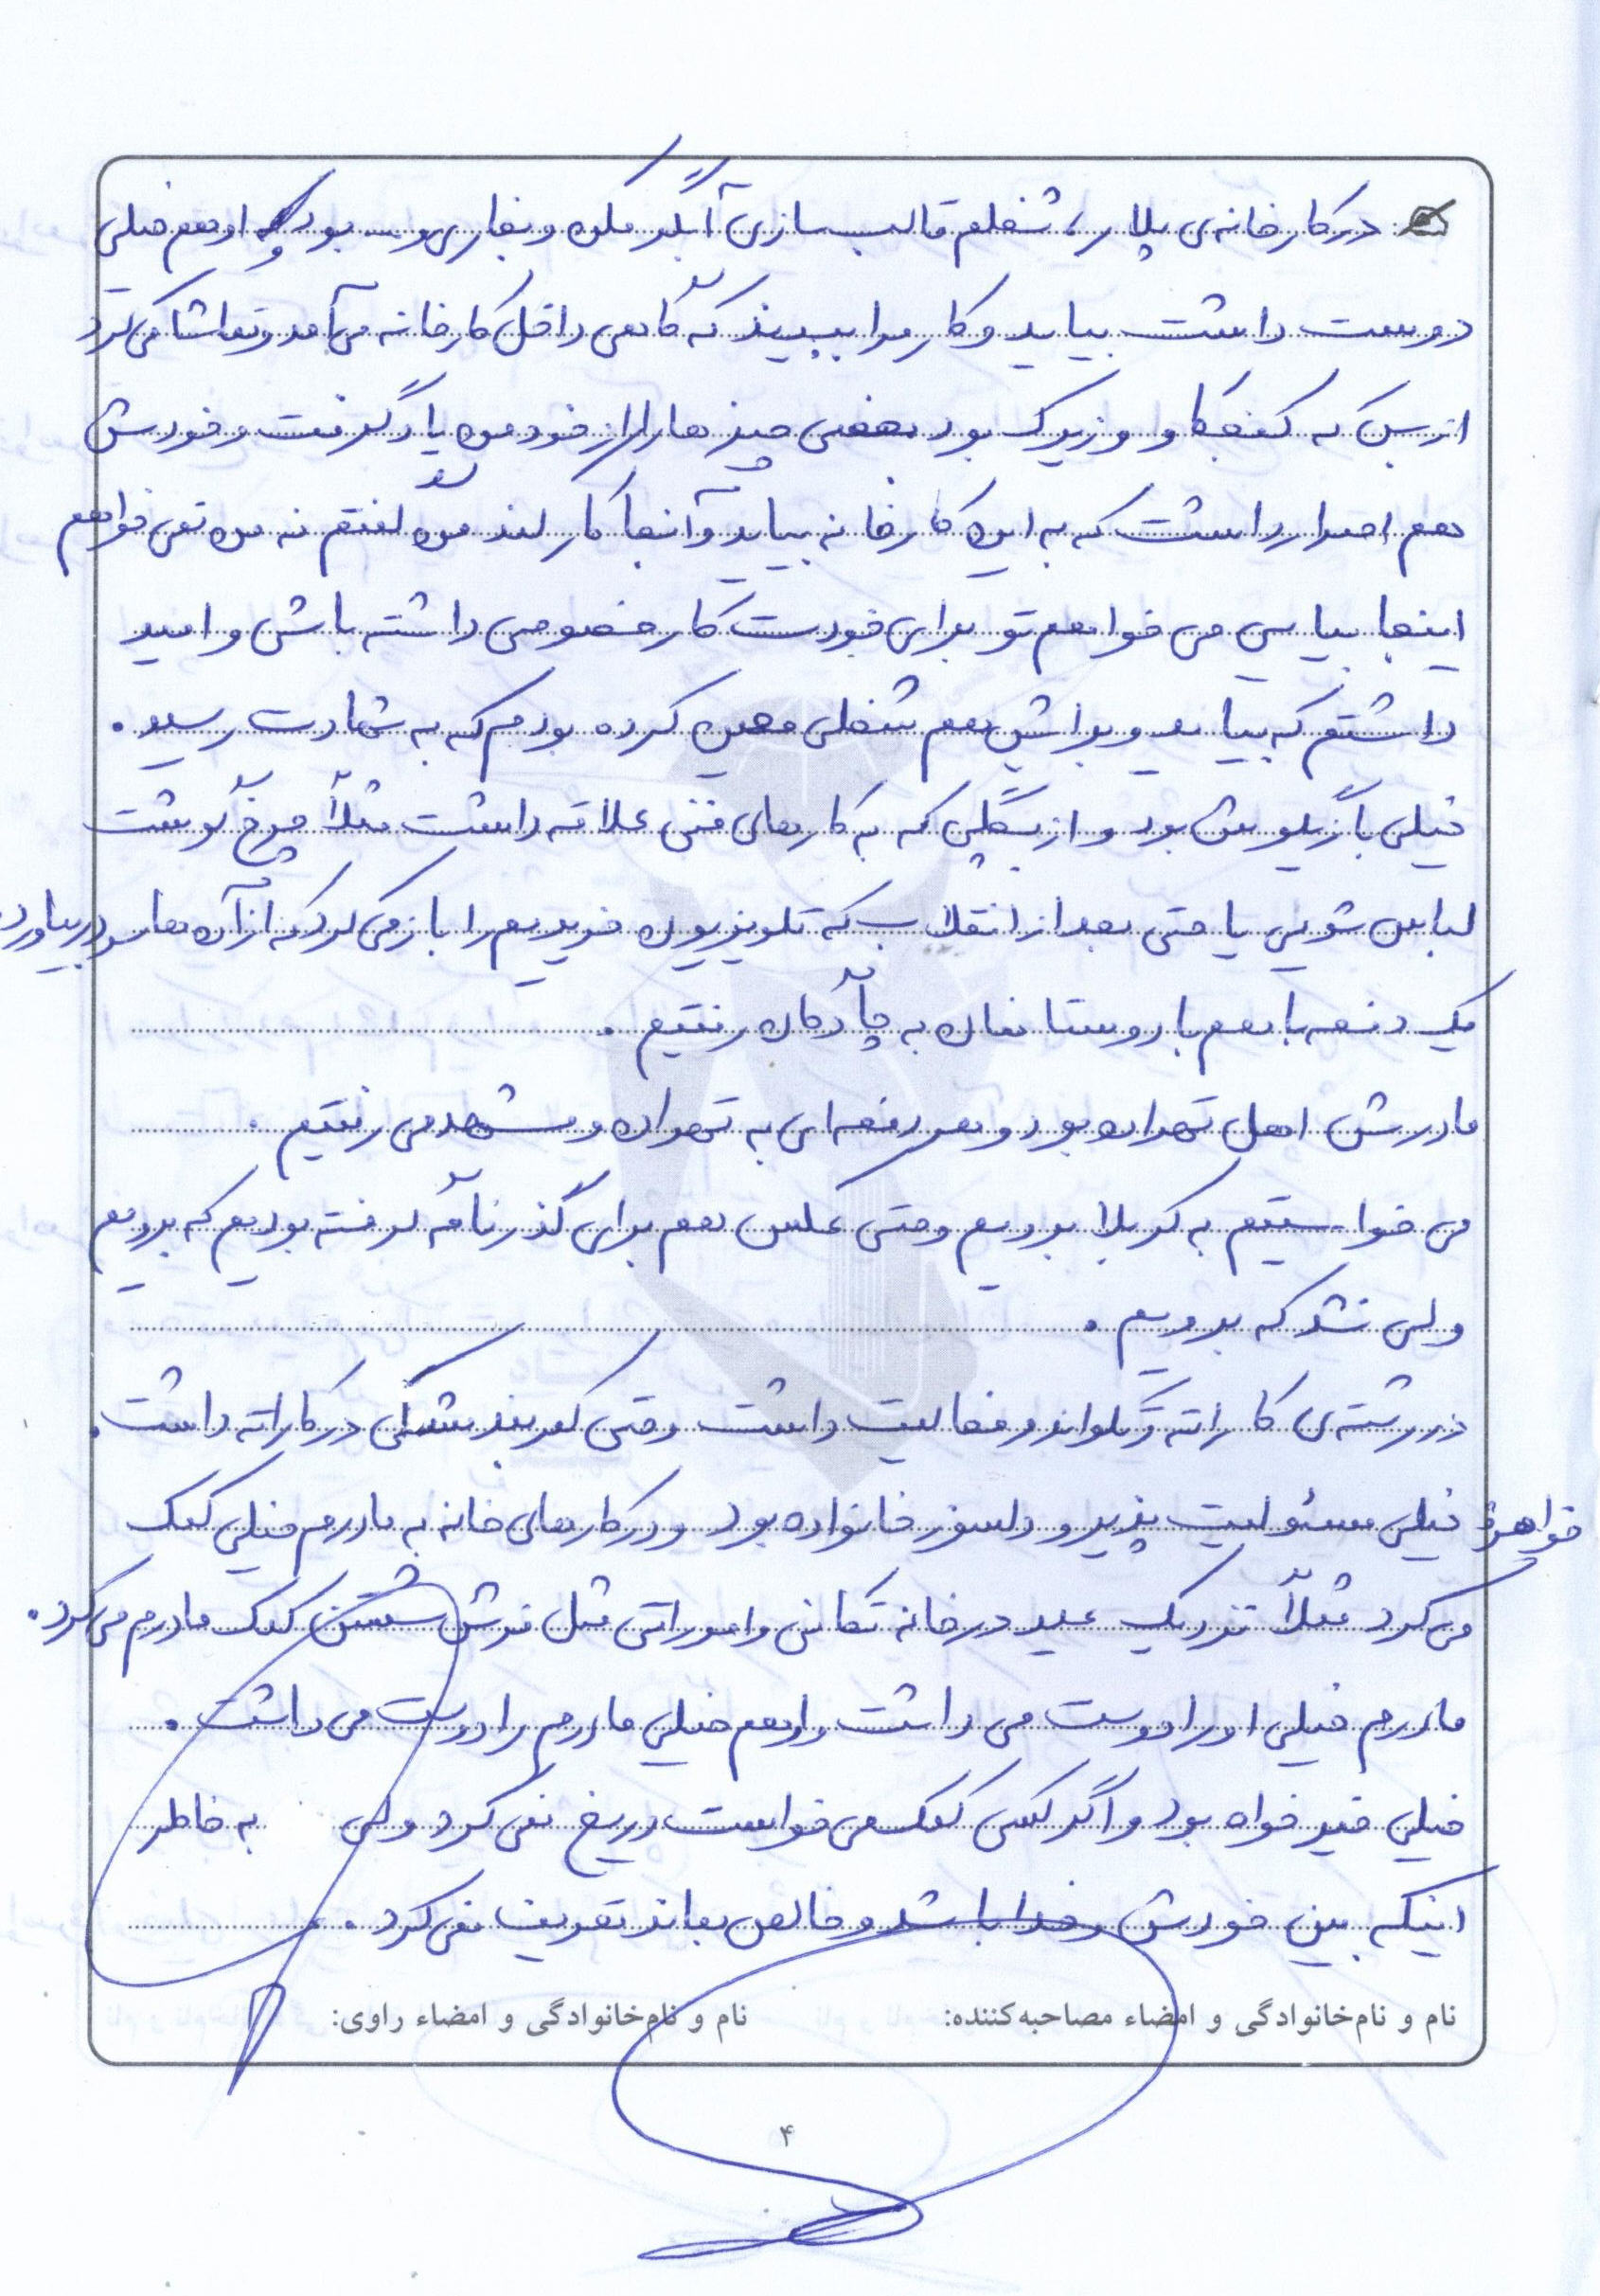 در کارخانه‌ی پلار، شغلم قالب سازی آبگرمکن و بخاری و... بود که او هم خیلی
دوست داشت بیاید و کار مرا ببیند که گاهی داخل کارخانه می‌آمد و تماشا می‌کرد
از بس که کنجکاو و زیرک بود بعضی چیزها را از خود من یاد گرفت و خودش
هم اصرار داشت که به این کارخانه بیاید و آنجا کار کند من گفتم نه من نمی‌خواهم
اینجا بیایی می‌خواهم تو برای خودت کار خصوصی داشته باشی و امید
داشتم که بیاید و برایش هم شغلی معین کرده بودم که به شهادت رسید.
خیلی بازیگوش بود و از بچگی که به کارهای فنی علاقه داشت مثلاً چرخ گوشت
لباس شویی یا حتی بعد از انقلاب که تلویزیون خریدیم را باز می‌کرد که از آن‌ها سر در بیاورد.
یک دفعه با هم با دوستانمان به چادگان رفتیم.
مادرش اهل تهران بود و هر دفعه‌ای به تهران و مشهد می‌رفتیم.
می‌خواستیم به کربلا برویم و حتی عکس هم برای گذرنامه گرفته بودیم که برویم
ولی نشد که برویم.
در رشته‌ی کاراته و تکواندو فعالیت داشت و حتی کمربند مشکی در کاراته داشت.
خواهر: خیلی مسئولیت پذیر و دلسوز خانواده بود و در کارهای خانه به مادرم خیلی کمک
می‌کرد مثلاً نزدیک عید در خانه تکانی و اموراتی مثل فرش شستن کمک مادرم می‌کرد.
مادرم خیلی او را دوست می‌داشت و او هم خیلی مادرم را دوست می‌داشت.
خیلی خیرخواه بود و اگر کسی کمک می‌خواست دریغ نمی‌کرد ولی به خاطر
اینکه بین خودش و خدا باشد و خالص بماند تعریف نمی‌کرد.
نام و نام‌خانوادگی و امضاء مصاحبه‌کننده: نام و نام‌خانوادگی و امضاء راوی:
۴